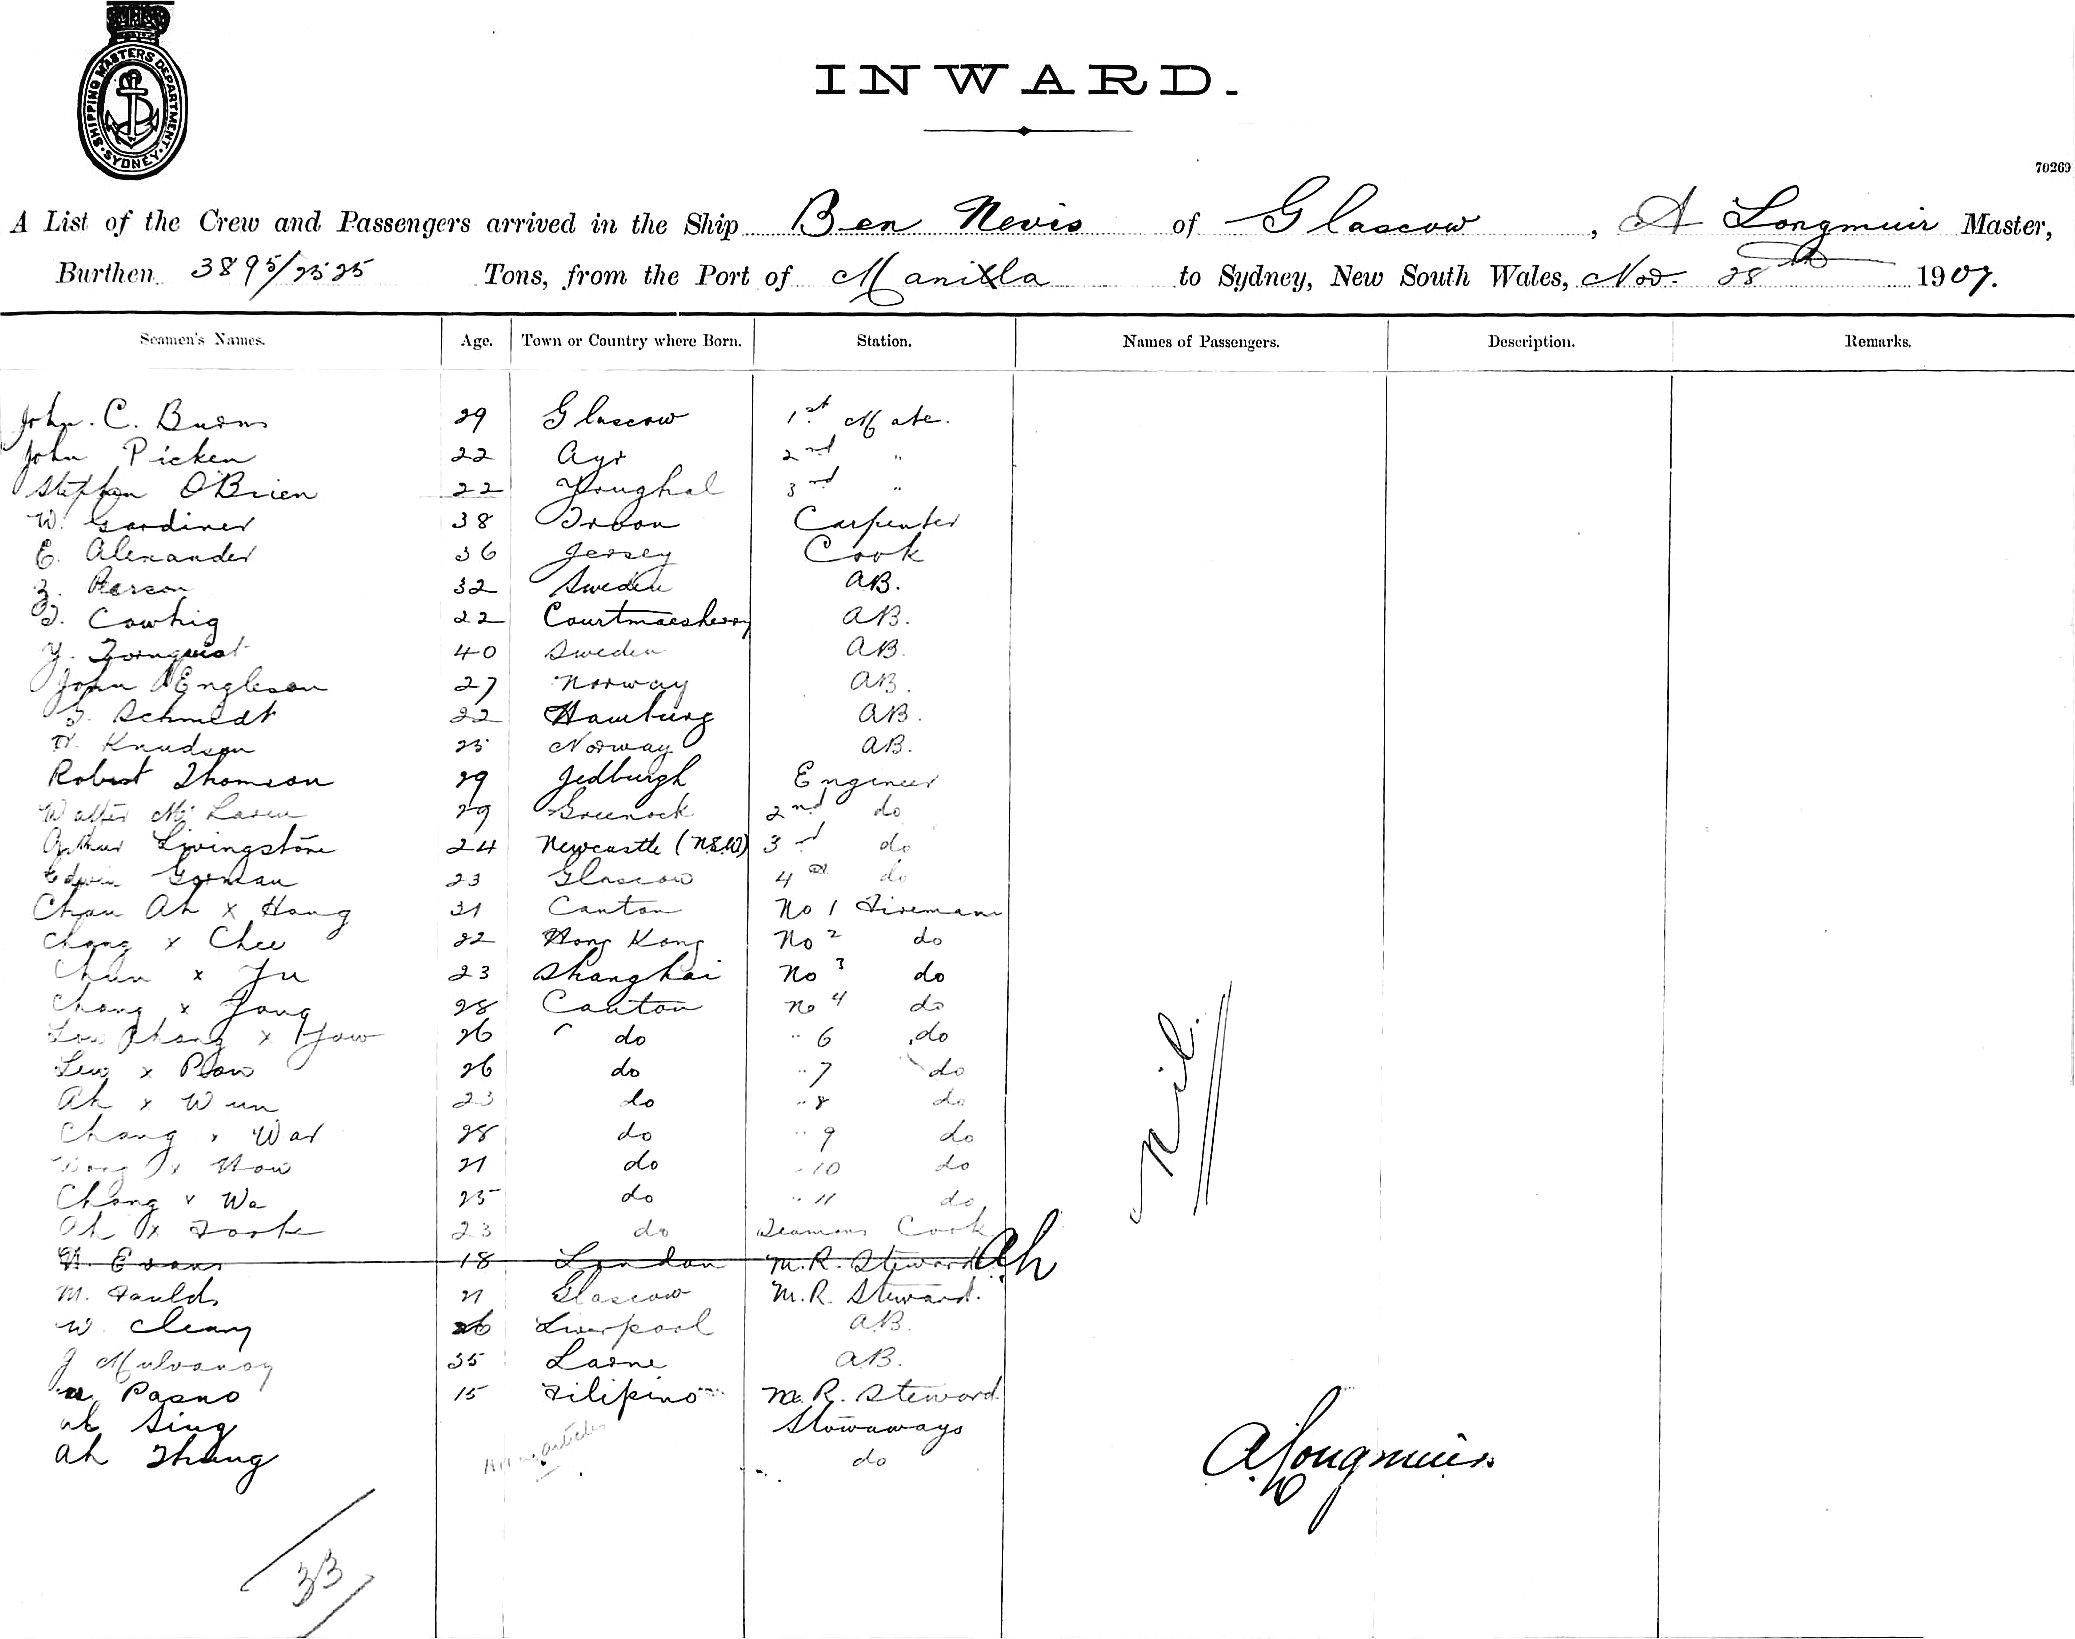 SHIPPING MASTERS DEPARTMENT. SYDNEY
INWARD.
70269
A List of the Crew and Passengers arrived in the Ship Ben Nevis of Glascow, A Longmuir Master,
Burthen 3895/2525 Tons, from the Port of Manilla to Sydney, New South Wales, Nov. 28th 1907.
Seamen's Names. Age. Town or Country where Born. Station. Names of Passengers. Description. Remarks.
John. C. Burns 29 Glascow 1st Mate.
John Picken 22 Ayr 2nd "
Stephen O'Brien 22 Youghal 3rd "
W. Gardiner 38 Troon Carpenter
E. Alexander 36 Jersey Cook
Person 32 Sweden AB.
Cowhig 22 Courtmacsherry AB.
Y. Tornquist 40 Sweden AB.
John Engleson 27 Norway AB.
Schmidt 22 Hamburg AB.
Knudson 25 Norway AB.
Robert Thomson 29 Jedburgh Engineer
Walter McLaren 29 Greenock 2nd do
Arthur Livingstone 24 Newcastle (N.S.W) 3rd do
Edwin Gorman 23 Glascow 4th do
Chan Ah x Hong 31 Canton No 1 Fireman
Chong x Chee 22 Hong Kong No 2 do
Chun x Ju 23 Shanghai No 3 do
Chong x Jong 28 Canton No 4 do
x 26 " do " 6 do
Lew x 26 do " 7 do
Ah x Wun 23 do " 8 do
Chong x War 28 do " 9 do
x How 21 do " 10 do
Chong x Wa 25 do " 11 do
Ah x Fook 23 do Seamens Cook
H. Evans 18 London M.R. Steward Ah
M. Faulds 21 Glascow M.R. Steward.
W. Cleary 26 Liverpool AB.
J Mulvanoy 35 Larne AB.
Pasno 15 Filipino M.R. Steward
Ah Sing Stowaways
Ah Thang articles do
Nil.
A Longmuir
33